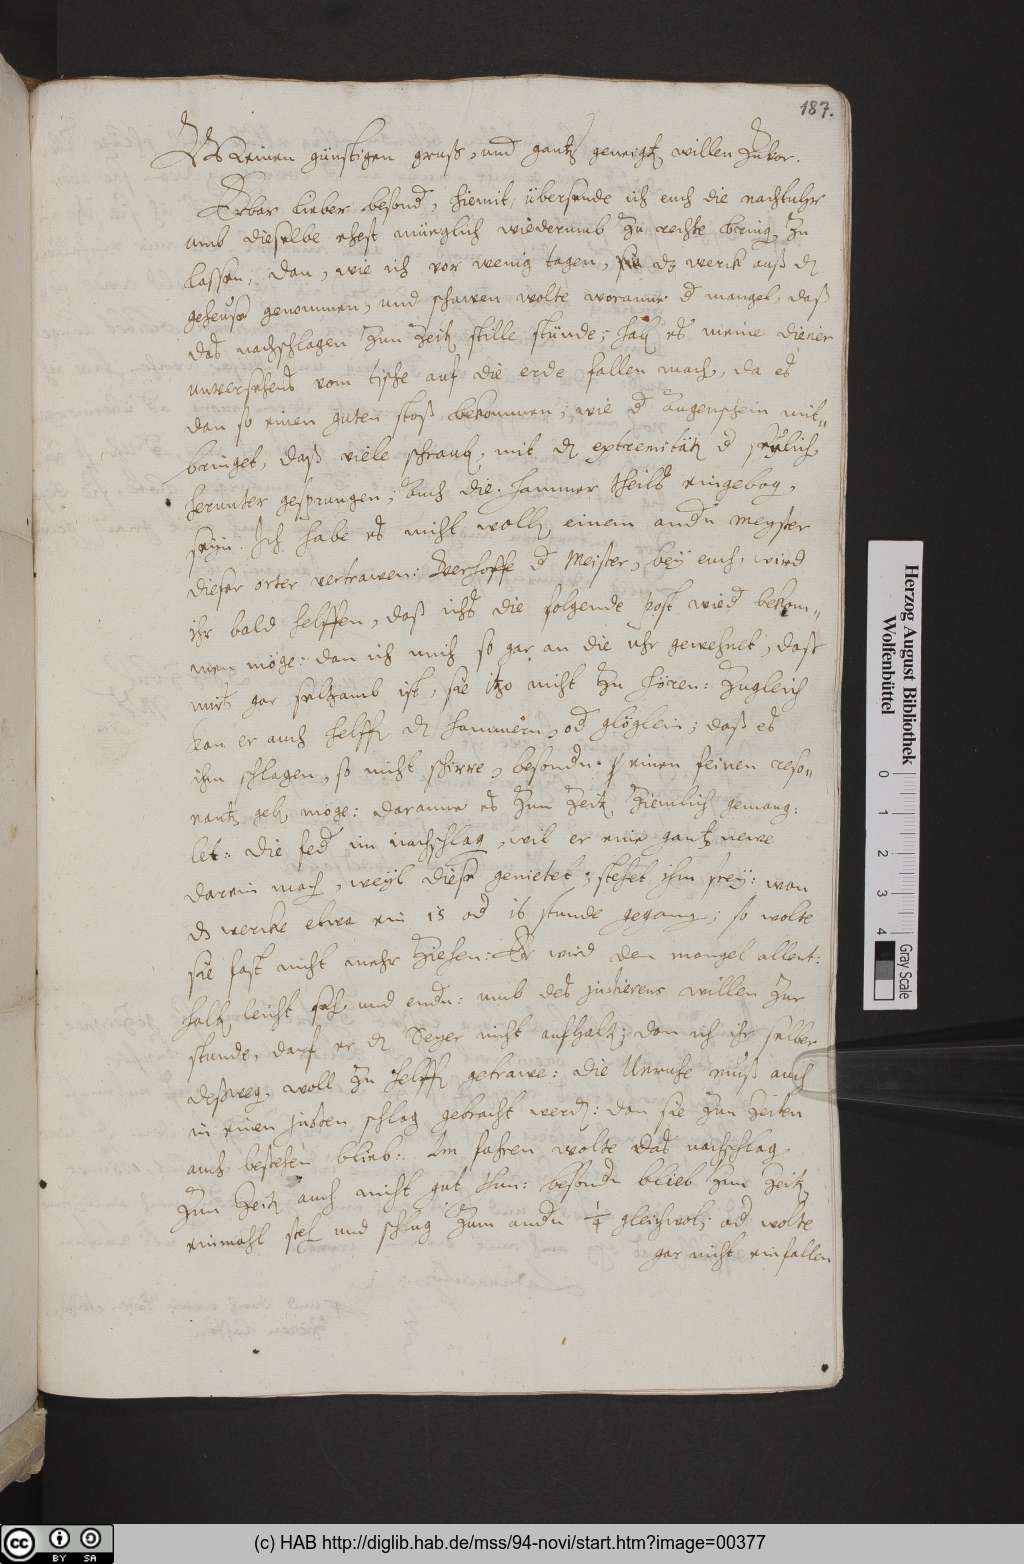 187.
Meinen günstigen gruß, und gantz geneigtē willen Zuvor.
Erbar lieber besond, hiemit übersende ich euch die nachtuhr
umb dieselbe ehest müeglich wiederumb zu rechte bring. zu
lassen; dan, wie ich vor wenig tagen, dz werck auß dē
geheuse genommen, und schawen wolte woranne d mangel, daß
das nachschlagen Zun Zeitē stille stünde; hatt es meine diener
unversehens vom tische auf die erde fallen mach., da es
dan so einen guten stoß bekommen; wie d Augenschein mit-
bringet, daß viele schraub. mit dē extremitätē d
herunter gesprungen; Auch die hammer theils eingebog.
seyn. Ich habe es nicht wollē einem andn Meyster
dieser örter vertrawen: Verhoffe d Meister, bey euch, wird
ihr bald helffen, daß ichs die folgende post wied bekom-
men möge: dan ich mich so gar an die uhr gewehnet, daß
mirs gar seltzamb ist, sie itzo nicht zu hören: Zugleich
kan er auch helffē dē hammern, od glöglein; daß es
ihm schlagen, so nicht schirre, besondn einen feinen reso-
nantz gebē möge: daranne es Zun Zeitē Ziemlich gemang-
let: die fed im nachschlag, wil er eine gantz newe
darein mach., weyl diese genietet; stehet ihm frey: wan
dz wercke etwa ein 15 od 16 stunde gegang; so wolte
sie fast nicht mehr Ziehen: Er wird den mangel allent-
halb leicht seh. und endn: umb des justierens willen Zur
stunde, darf er dē Seyer nicht aufhaltē; dan ich ihr selber
deßweg. woll zu helffē getrawe: die Unruhe muß auch
in einen schlag gebracht werdē: dan sie Zun Zeiten
auch bestehen blieb: Im fahren wolte das nachschlag.
Zun Zeitē auch nicht gut thun: besondn blieb Zun Zeitē
einmahl steh und schlug Zum andn 1/4 gleichwol; od wolte
gar nicht einfallen
Herzog August Bibliothek
Wolfenbüttel
0 1 2 3 4
Gray Scale
cc BY SA
(c) HAB http://diglib.hab.de/mss/94-novi/start.htm?image=00377